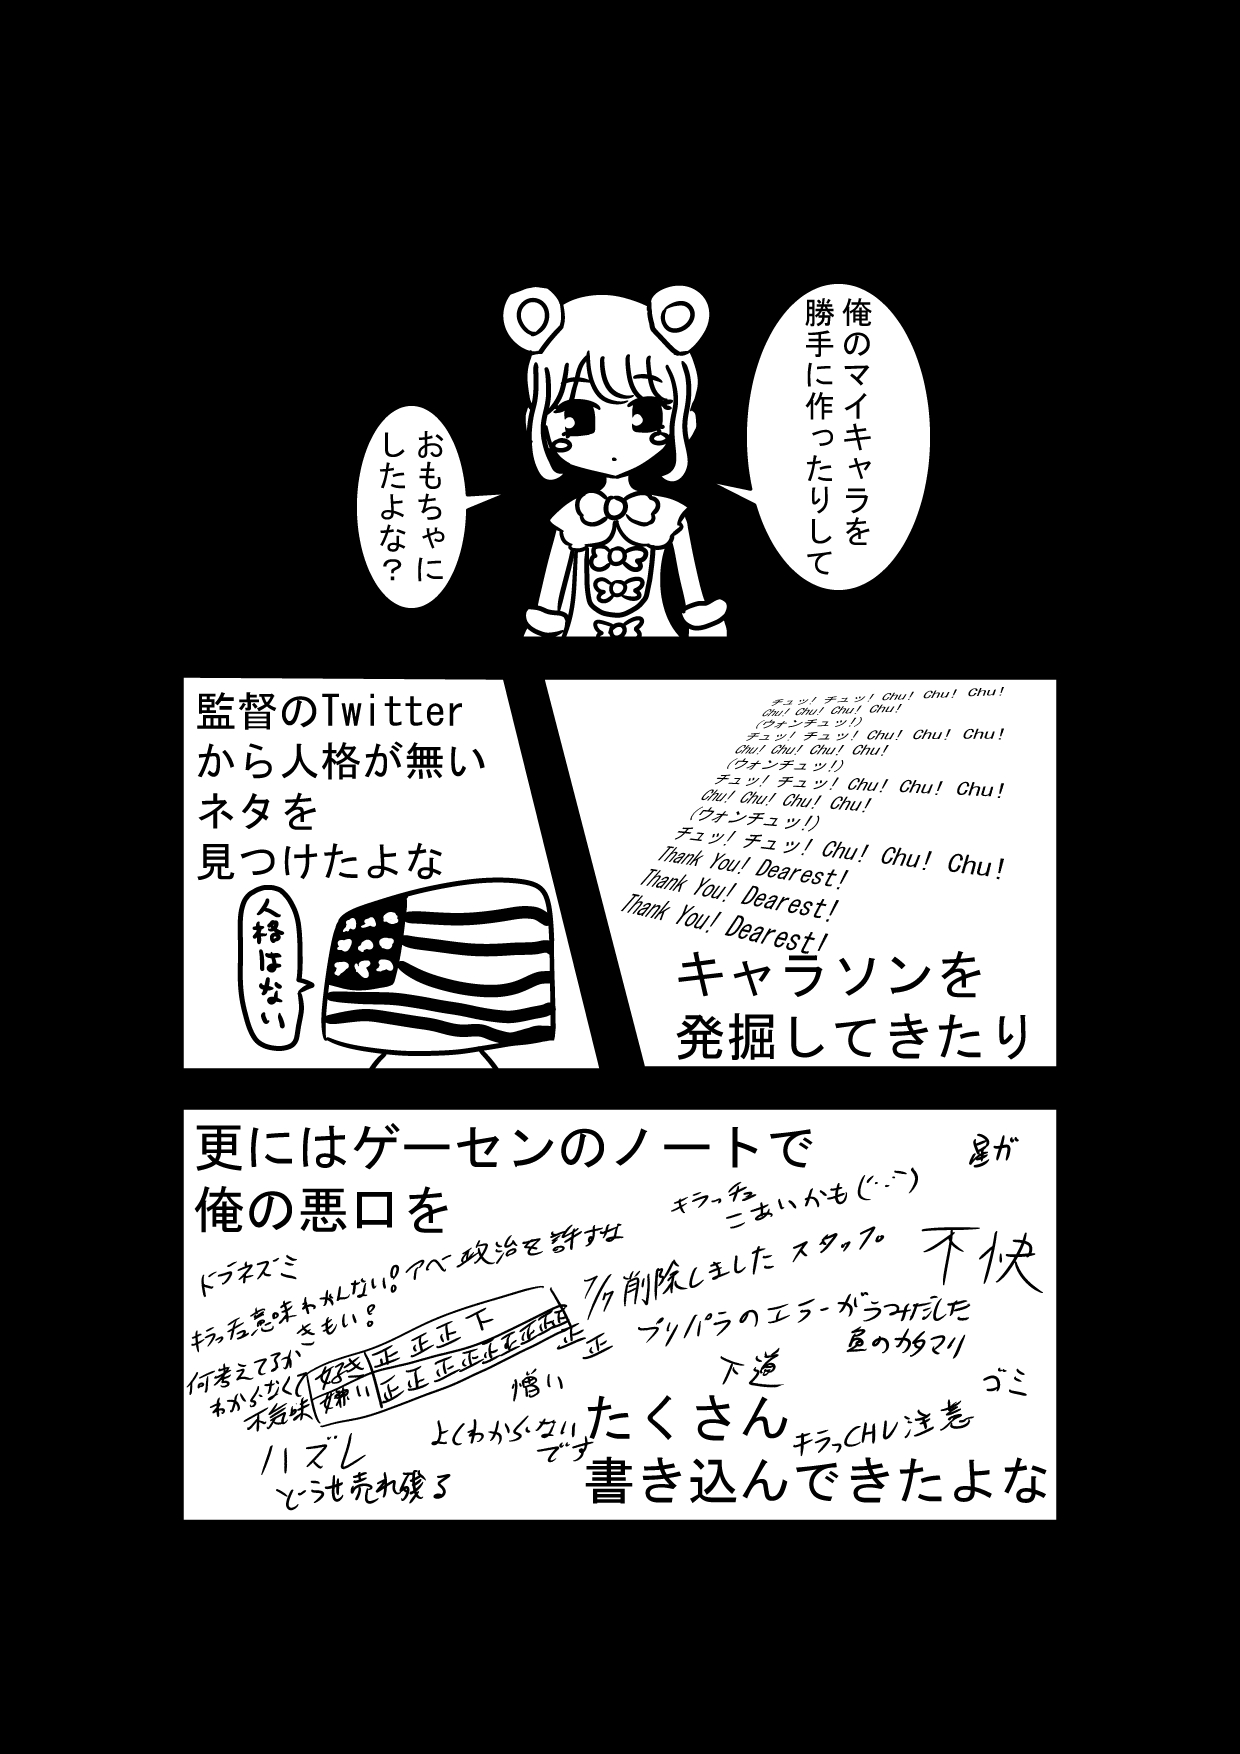 俺のマイキャラを
勝手に作ったりして
おもちゃに
したよな？
チュッ! チュッ! Chu! Chu! Chu!
Chu! Chu! Chu! Chu!
(ウォンチュッ!)
チュッ! チュッ! Chu! Chu! Chu!
Chu! Chu! Chu! Chu!
(ウォンチュッ!)
チュッ! チュッ! Chu! Chu! Chu!
Chu! Chu! Chu! Chu!
(ウォンチュッ!)
チュッ! チュッ! Chu! Chu! Chu!
Thank You! Dearest!
Thank You! Dearest!
Thank You! Dearest!
キャラソンを
発掘してきたり
監督のTwitter
から人格が無い
ネタを
見つけたよな
人格はない
更にはゲーセンのノートで
俺の悪口を
星が
キラっチュ
こあいかも(´･_･`)
不快
アベ政治を許すな
ドブネズミ
7/7 削除しました スタッフ
キラっチュ意味わかんない!
きもい!
プリパラのエラーがうみだした
昼のカタマリ
何考えてるか
わからなくて
不気味
好き 正正正下
嫌い 正正正正正正正正正正
下道
憎い
ゴミ
よくわからない
です
キラっCHU注意
ハズレ
どうせ売れ残る
たくさん
書き込んできたよな